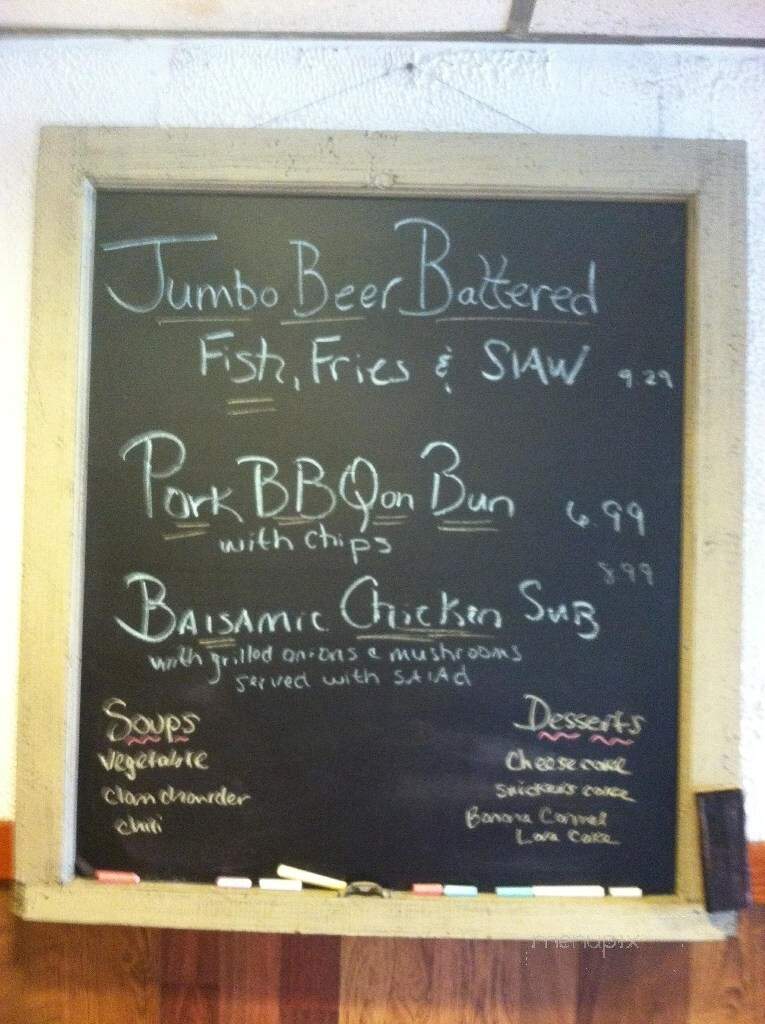 Jumbo Beer Battered
Fish, Fries & SlAW 9.29
Pork BBQ on Bun 6.99
with chips
8.99
BAlsAmic Chicken SuB
with grilled onions & mushrooms
served with SAlAd
Soups
vegetable
clam chowder
chili
Desserts
Cheese cake
snickers cake
Banana Carmel
Lava Cake
menupix